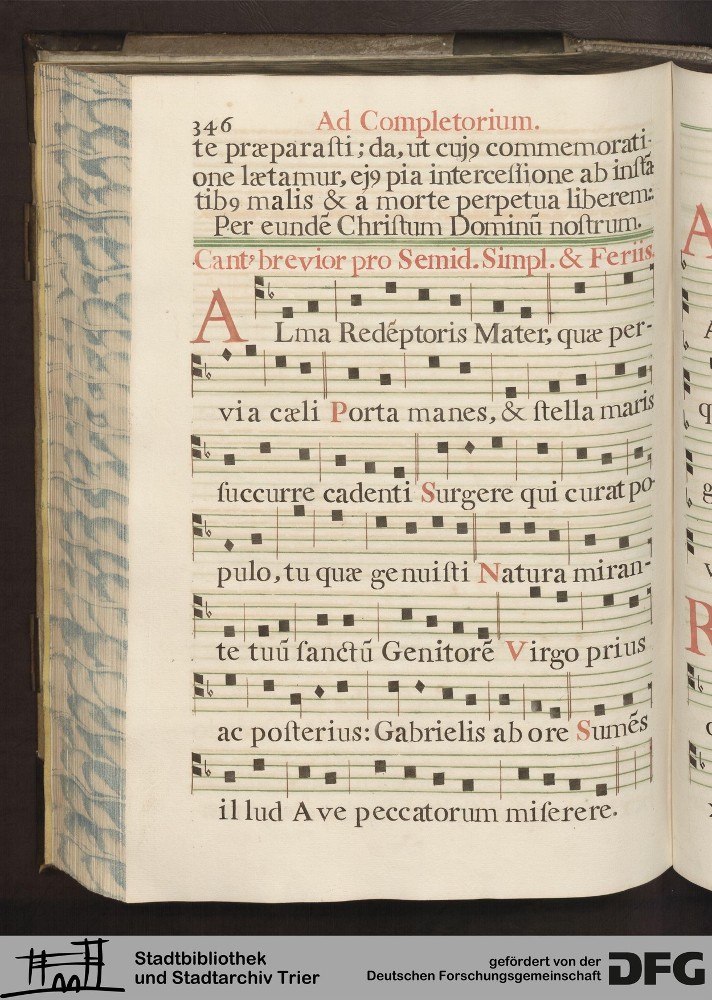 346 Ad Completorium.
te præparaſti; da, ut cujꝯ commemorati-
one lætamur, ejꝯ pia interceſſione ab inſtã
tibꝯ malis & a morte perpetua liberem:
Per eundē Chriſtum Dominū noſtrum.
Cantꝯ brevior pro Semid. Simpl. & Feriis.
ALma Redēptoris Mater, quæ per-
via cæli Porta manes, & ſtella maris
ſuccurre cadenti Surgere qui curat po-
pulo, tu quæ genuiſti Natura miran-
te tuū ſanctū Genitorē Virgo prius
ac poſterius: Gabrielis ab ore Sumēs
illud Ave peccatorum miſerere.
Stadtbibliothek
und Stadtarchiv Trier
gefördert von der
Deutschen Forschungsgemeinschaft
DFG